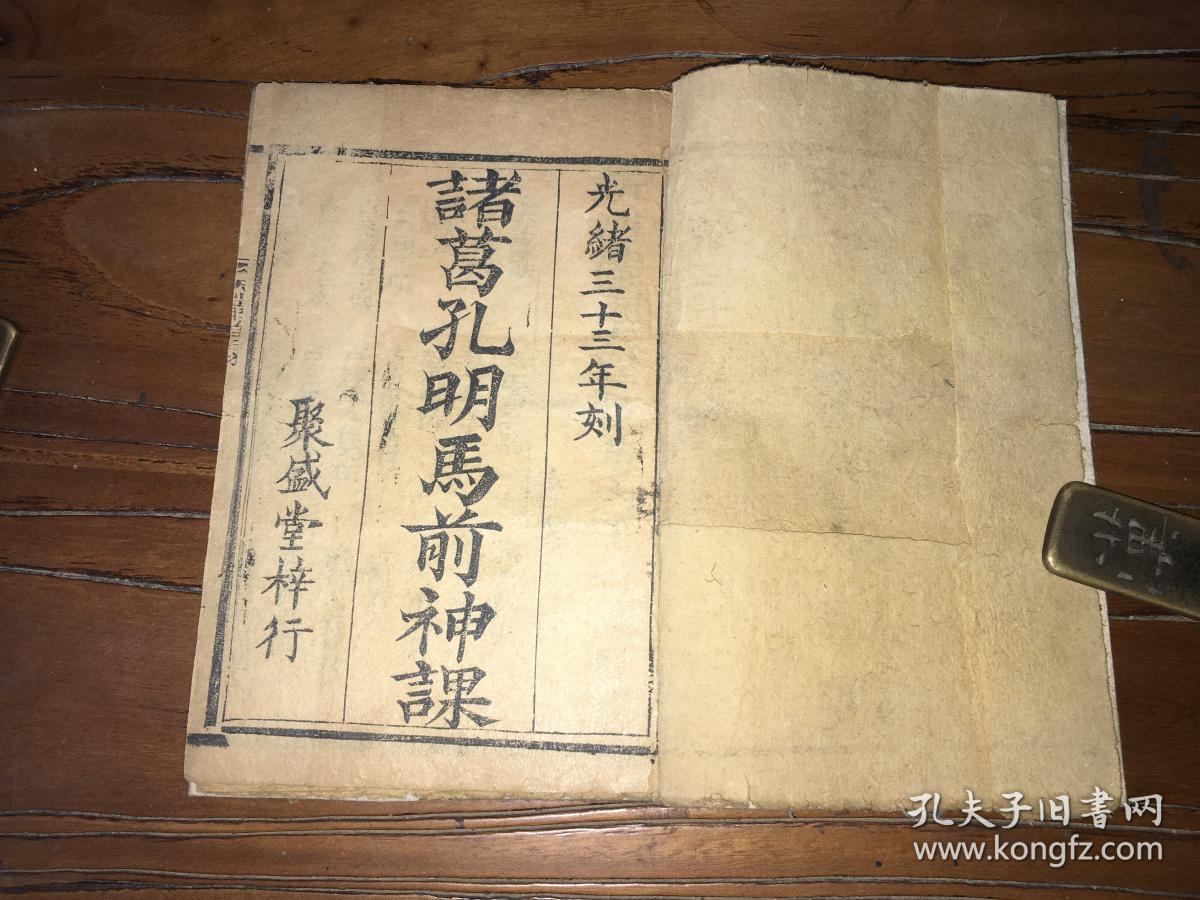 光緒三十三年刻
諸葛孔明馬前神課
聚盛堂梓行
孔夫子旧书网
www.kongfz.com